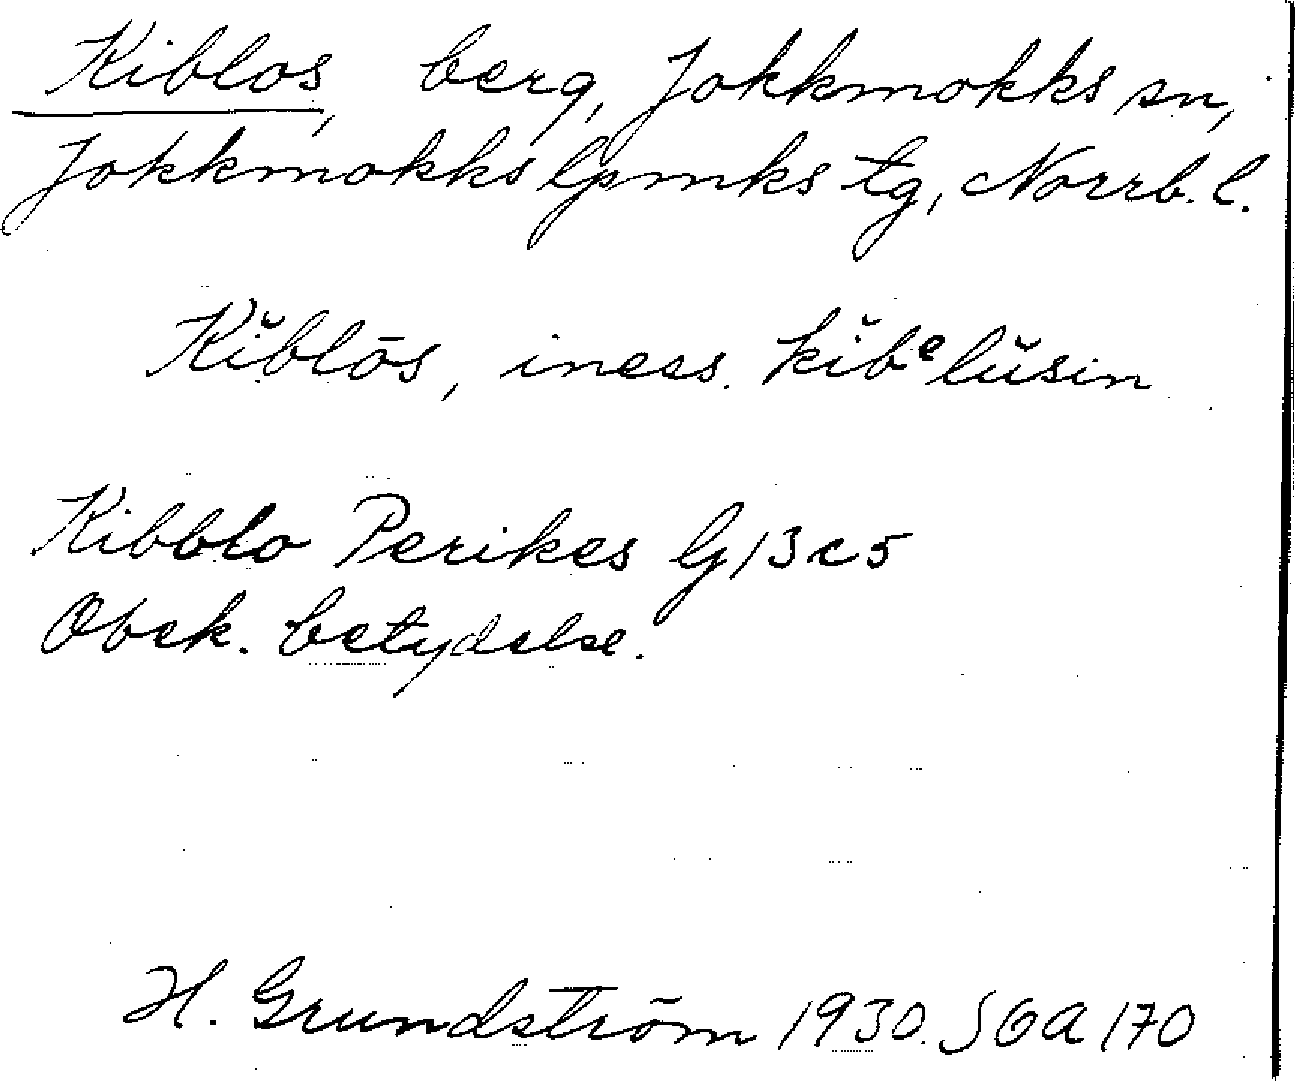 Kiblos, berg, Jokkmokks sn,
Jokkmokks lpmks tg, Norrb. l.
Kĭblōs, iness. kĭbᵉlŭsin
Kibblo Perikes lg 13 c 5
Obek. betydelse.
H. Grundström 1930. SOA 170